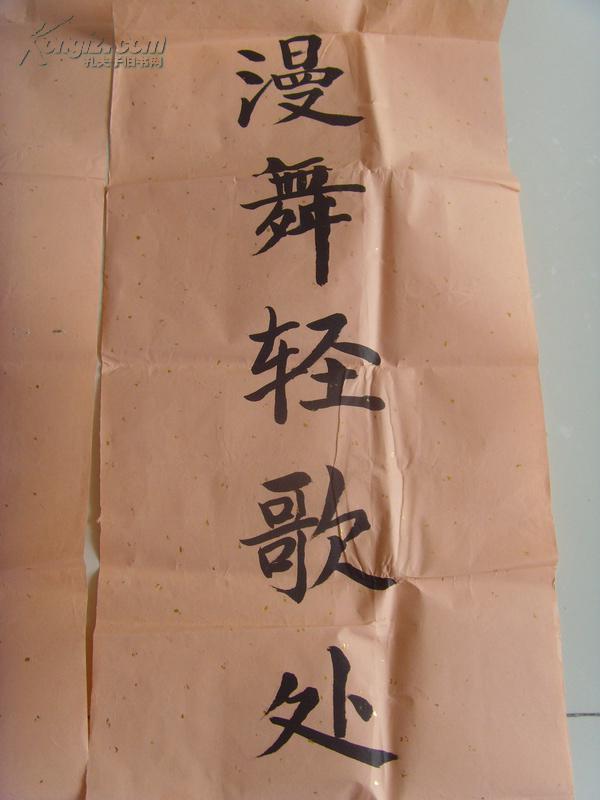 Kongfz.com
孔夫子旧书网
漫舞轻歌处